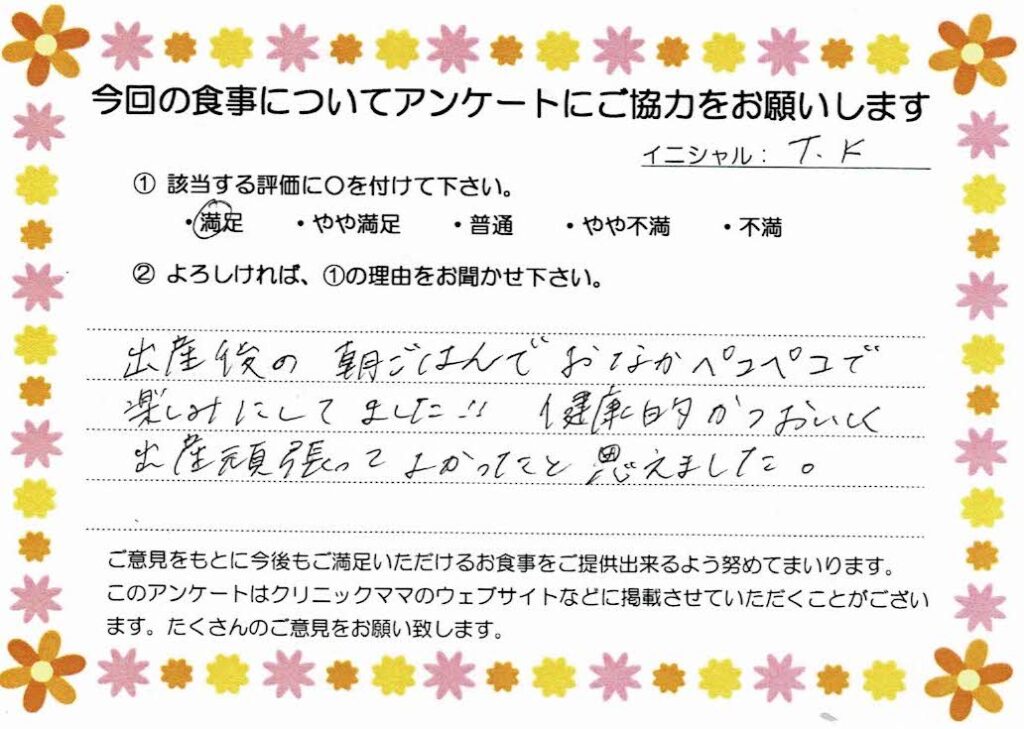 今回の食事についてアンケートにご協力をお願いします
イニシャル： T.K
① 該当する評価に○を付けて下さい。
・満足 ・やや満足 ・普通 ・やや不満 ・不満
② よろしければ、①の理由をお聞かせ下さい。
出産後の朝ごはんでおなかペコペコで
楽しみにしてました!! 健康的かつおいしく
出産頑張ってよかったと思えました。
ご意見をもとに今後もご満足いただけるお食事をご提供出来るよう努めてまいります。
このアンケートはクリニックママのウェブサイトなどに掲載させていただくことがござい
ます。たくさんのご意見をお願い致します。